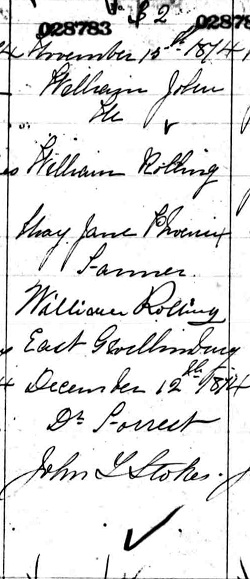 82
028783 028784
November 15th 1874
William John
M
William Rolling
May Jane Phoenix
Farmer
William Rolling
East Gwillimbury
December 12th 1874
Dr Forrest
John T Stokes